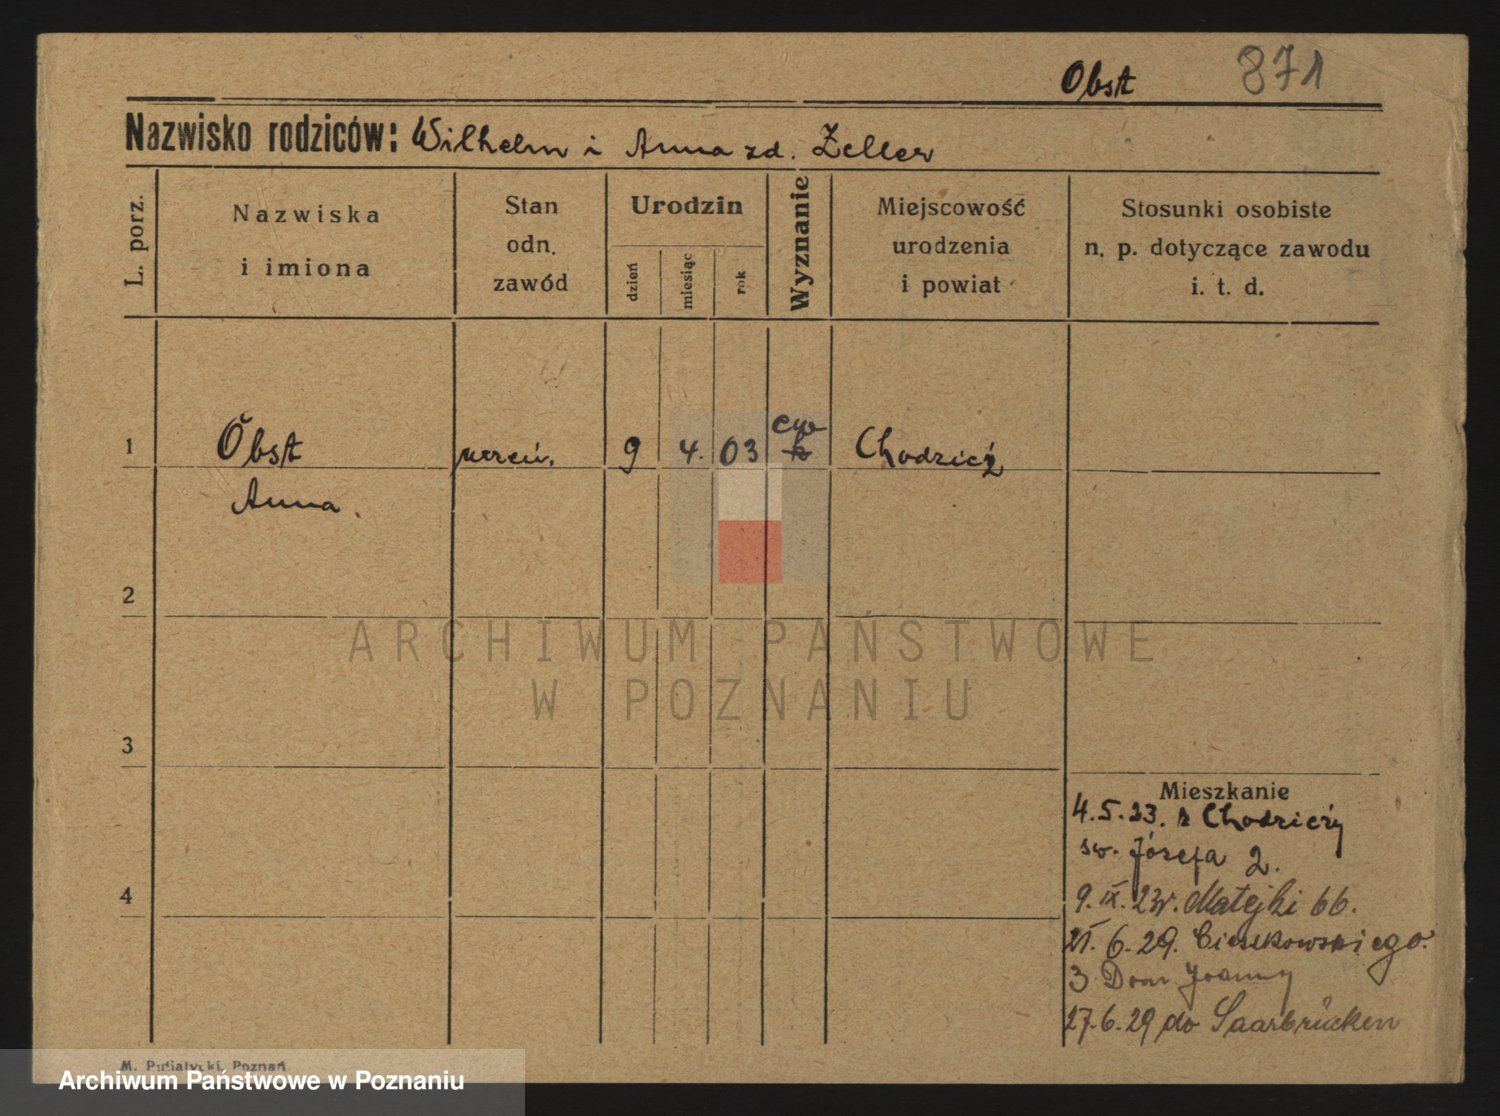 Obst 871
Nazwisko rodziców: Wilhelm i Anna zd. Zeller
L. porz.
Nazwiska
i imiona
Stan
odn.
zawód
Urodzin
dzień
miesiąc
rok
Wyznanie
Miejscowość
urodzenia
i powiat
Stosunki osobiste
n. p. dotyczące zawodu
i. t. d.
1 Obst 9 4. 03 Chodzież
Anna.
2
3
4
ARCHIWUM PAŃSTWOWE
W POZNANIU
Mieszkanie
4.5.23. z Chodzieży
św. Józefa 2.
9. IX. 23r. Matejki 66.
21. 6. 29. Cieszkowskiego.
3 Dom Joanny
27.6.29 do Saarbrücken
M. Putiatycki, Poznań
Archiwum Państwowe w Poznaniu